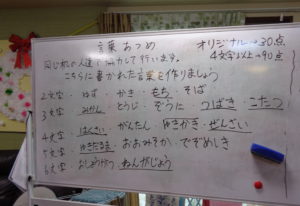 言葉あつめ
オリジナル→30点
4文字以上→90点
同じ机の人達と協力して行います。
こちらに書かれた言葉を作りましょう
2文字 ゆず かき もち そば
3文字 みかん・とうじ・ぞうに つばき こたつ
4文字 はくさい がんたん ぜんざい
5文字 ゆきだるま おおみそか・
6文字 ねんがじょう